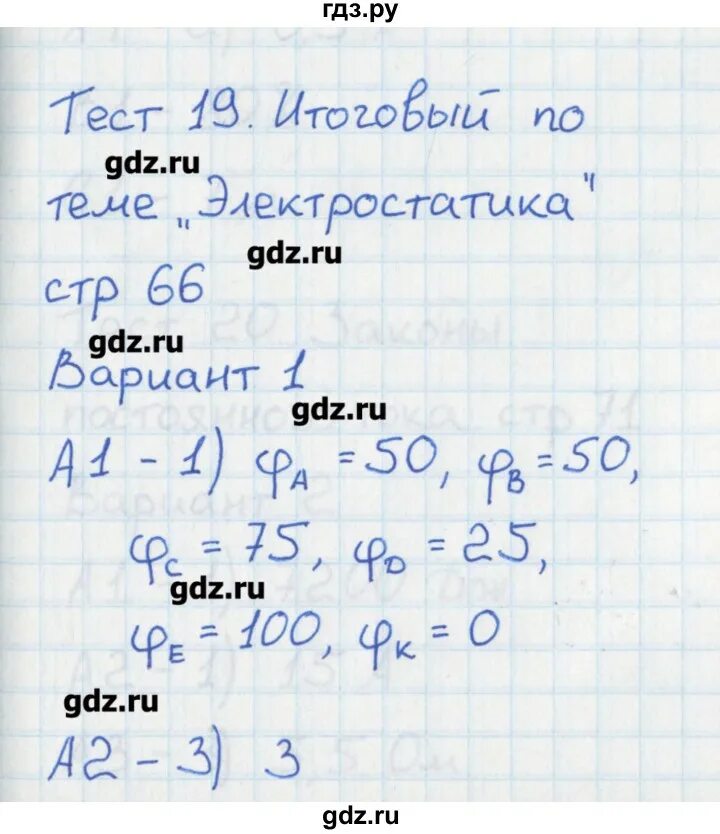 гдз.ру
Тест 19. Итоговый по
gdz.ru
теме „Электростатика"
gdz.ru
стр 66
gdz.ru
Вариант 1
gdz.ru
А1 - 1) φA = 50, φB = 50,
φC = 75, φD = 25,
gdz.ru
φE = 100, φK = 0
gdz.ru
А2 - 3) 3
gdz.ru